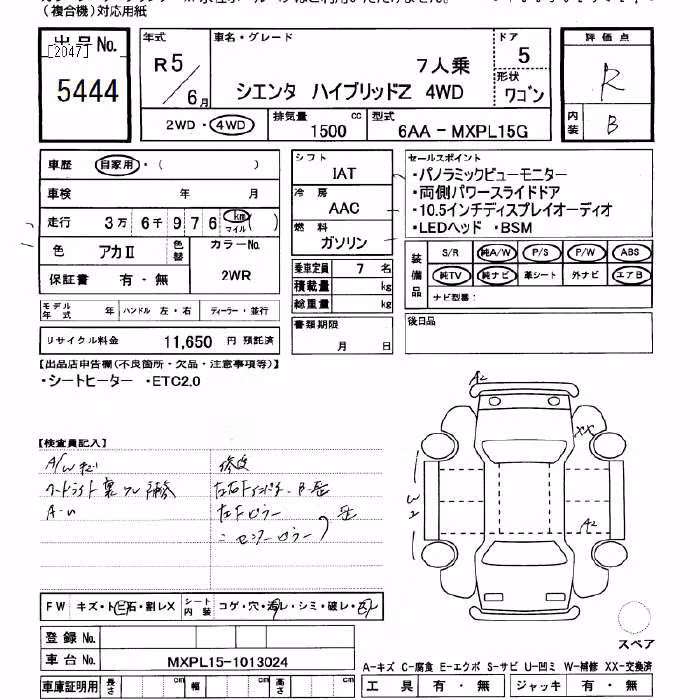 (複合機)対応用紙
出品No.
[2047]
5444
年式
R5
6月
車名・グレード
7人乗
シエンタ ハイブリッドZ 4WD
ドア
5
形状
ワゴン
2WD・4WD
排気量
1500
cc
型式
6AA-MXPL15G
評価点
R
内装
B
車歴 自家用・( )
車検 年 月
走行 3万 6千 9 7 6 km マイル ( )
色 アカⅡ 色替 カラーNo.
保証書 有・無 2WR
シフト
IAT
冷房
AAC
燃料
ガソリン
乗車定員 7 名
積載量 kg
総重量 kg
セールスポイント
・パノラミックビューモニター
・両側パワースライドドア
・10.5インチディスプレイオーディオ
・LEDヘッド ・BSM
装備品
S/R 純A/W P/S P/W ABS
純TV 純ナビ 革シート 外ナビ エアB
ナビ型番:
モデル年式 年 ハンドル 左・右 ディーラー・並行
リサイクル料金 11,650 円 預託済
書類期限
月 日
後日品
【出品店申告欄(不良箇所・欠品・注意事項等)】
・シートヒーター ・ETC2.0
【検査員記入】
A2
XX
W2
A2
FW キズ・ト 石・割レX シート内装 コゲ・穴・汚レ・シミ・破レ・
登録No.
車台No. MXPL15-1013024
車庫証明用 長さ cm 幅 cm 高さ cm
スペア
A-キズ C-腐食 E-エクボ S-サビ U-凹ミ W-補修 XX-交換済
工具 有・無 ジャッキ 有・無